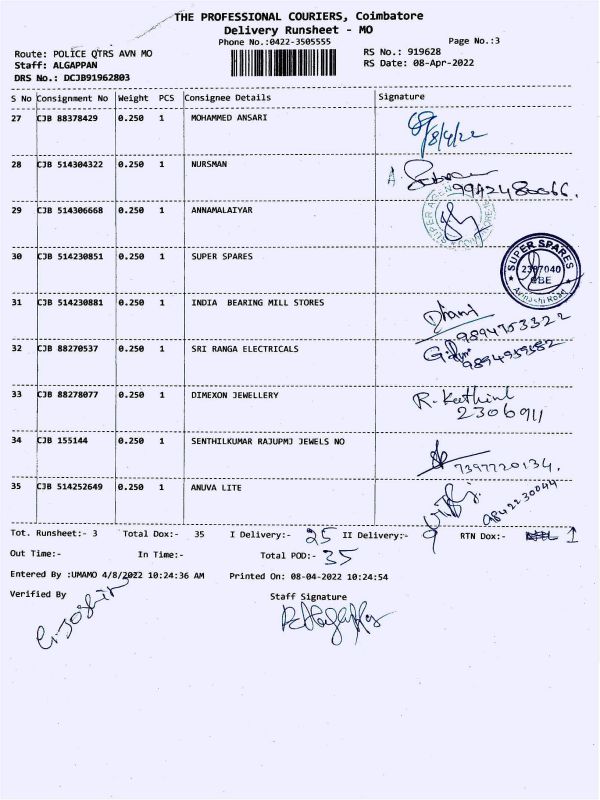 THE PROFESSIONAL COURIERS, Coimbatore
Delivery Runsheet - MO
Phone No.:0422-3505555
Page No.:3
Route: POLICE QTRS AVN MO
RS No.: 919628
Staff: ALGAPPAN
RS Date: 08-Apr-2022
DRS No.: DCJB91962803
S No Consignment No Weight PCS Consignee Details Signature
27 CJB 88378429 0.250 1 MOHAMMED ANSARI
8/4/22
28 CJB 514304322 0.250 1 NURSMAN
A.
9942480066.
29 CJB 514306668 0.250 1 ANNAMALAIYAR
30 CJB 514230851 0.250 1 SUPER SPARES
SUPER SPARES
2387040
CBE
Avinashi Road
31 CJB 514230881 0.250 1 INDIA BEARING MILL STORES
9894753322
32 CJB 88270537 0.250 1 SRI RANGA ELECTRICALS
9894959582
33 CJB 88278077 0.250 1 DIMEXON JEWELLERY
R.
2306911
34 CJB 155144 0.250 1 SENTHILKUMAR RAJUPMJ JEWELS NO
7397720134.
35 CJB 514252649 0.250 1 ANUVA LITE
9842230044
Tot. Runsheet:- 3 Total Dox:- 35 I Delivery:- 25 II Delivery:- 9 RTN Dox:- 1
Out Time:- In Time:- Total POD:- 35
Entered By :UMAMO 4/8/2022 10:24:36 AM Printed On: 08-04-2022 10:24:54
Verified By Staff Signature